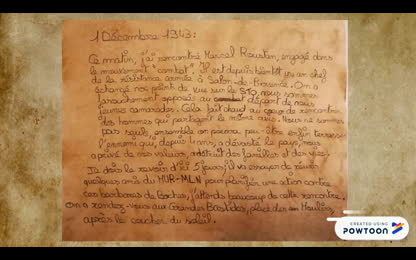 1 Décembre 1943:
Ce matin, j'ai rencontré Marcel Roustan, engagé dans
le mouvement "combat". Il est depuis bientôt un an chef
de la résistance armée à Salon-de-Provence. On a
échangé nos points de vue sur le STO, nous sommes
farouchement opposés au départ de nos
jeunes camarades. Cela fait chaud au coeur de rencontrer
des hommes qui partagent le même avis. Nous ne sommes
pas seuls, ensemble on pourra peut-être enfin terrasser
l'ennemi qui, depuis 4 ans, a dévasté le pays, nous
a privé de nos valeurs, a détruit des familles et des vies.
Je dois le revoir d'ici 5 jours, il va essayer de réunir
quelques amis du MUR-MLN pour planifier une action contre
ces barbares de Boches, j'attends beaucoup de cette rencontre.
On a rendez-vous aux Grandes Bastides, place des Moulins
après le coucher du soleil.
CREATED USING
POWTOON